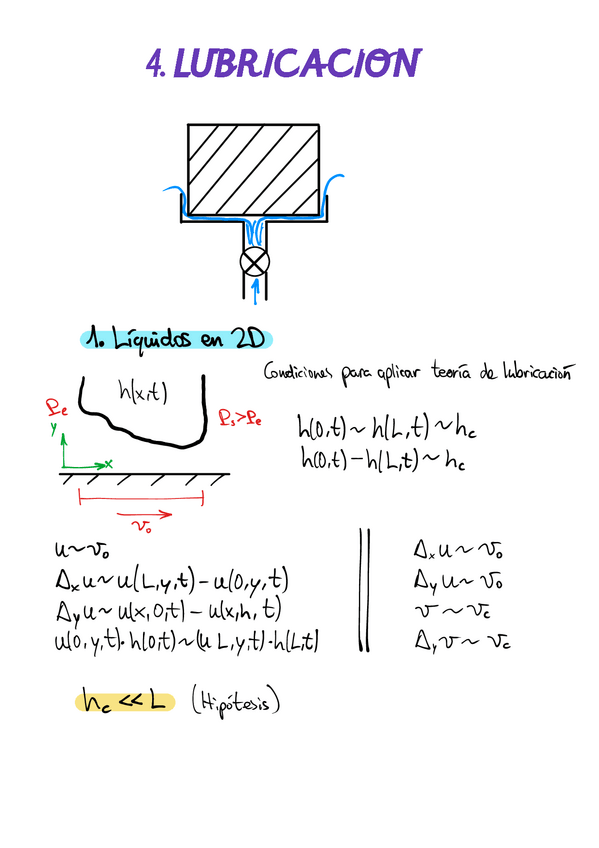 4. LUBRICACION
1. Líquidos en 2D
Condiciones para aplicar teoría de lubricación
h(x,t)
Pe
Ps>Pe
y
x
v₀
h(0,t)~h(L,t)~hc
h(0,t)-h(L,t)~hc
u~v₀
Δxu~u(L,y,t)-u(0,y,t)
Δyu~u(x,0,t)-u(x,h,t)
u(0,y,t)·h(0,t)~(u L,y,t)·h(L,t)
Δxu~v₀
Δyu~v₀
v~vc
Δyv~vc
hc<<L (Hipótesis)